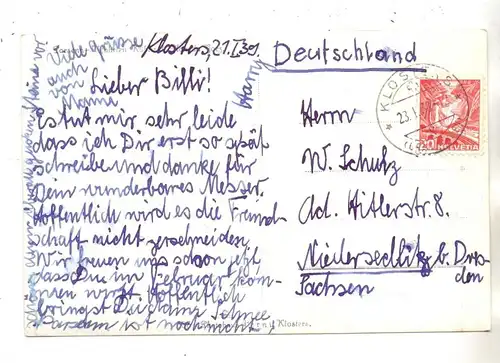 Klosters, 21.I.39
Lieber Billi!
Es tut mir sehr leide
dass ich Dir erst so spät
Schreibe und danke für
Dein wunderbares Messer.
Hoffentlich wird es die Freund-
schaft nicht zerschneiden.
Wir freuen uns schon jetzt,
dass Du im Februar kom-
men wirst. Hoffentlich
bringst Du dann Schnee,
Parsenn ist noch nicht
Harry
Viele Grüsse
auch
von
Mama.
Deutschland
Herrn
W. Schulz
Ad. Hitlerstr. 8.
Niedersedlitz b. Dres-
den
Sachsen
KLOSTERS
23.I.
20 HELVETIA
Klosters.